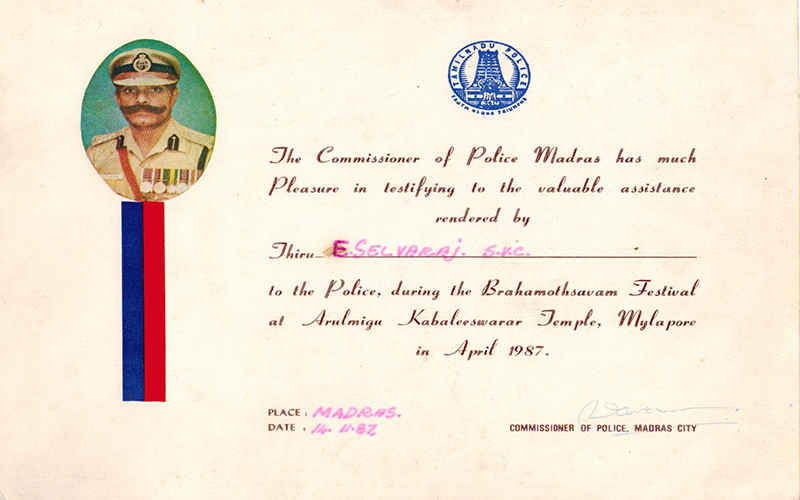 TAMILNADU POLICE
TRUTH ALONE TRIUMPHS
The Commissioner of Police Madras has much
Pleasure in testifying to the valuable assistance
rendered by
Thiru E. SELVARAJ. S.V.C.
to the Police, during the Brahamothsavam Festival
at Arulmigu Kabaleeswarar Temple, Mylapore
in April 1987.
PLACE : MADRAS.
DATE : 14.11.87,
COMMISSIONER OF POLICE, MADRAS CITY